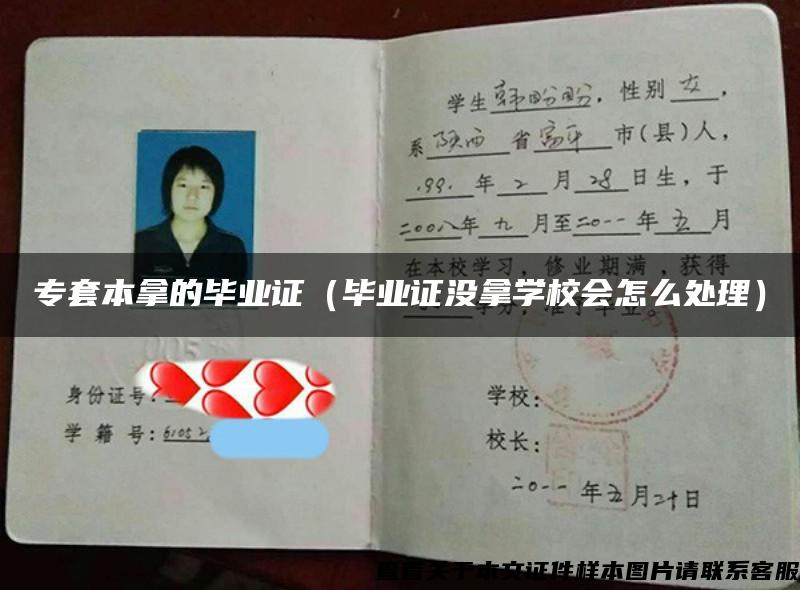 学生韩盼盼,性别女,
系陕西省富平市(县)人,
1991年2月28日生,于
二00八年九月至二0一一年五月
在本校学习,修业期满,获得
学分,准予毕业。
专套本拿的毕业证(毕业证没拿学校会怎么处理)
005
身份证号:
学籍号:61052
学校:
校长:
二0一一年五月二十日
查看关于本文证件样本图片请联系客服